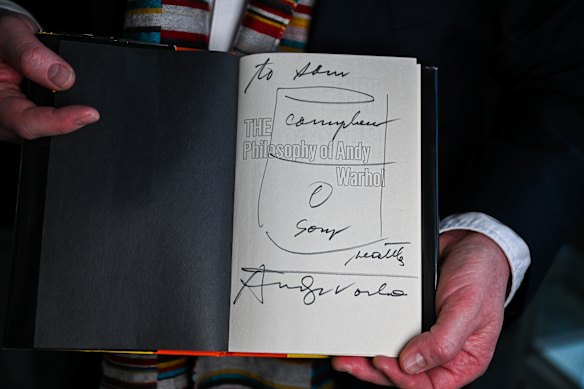 to Sam
THE
Campbell
Philosophy of Andy
Warhol
O
Soup
Seattle
Andy Warhol